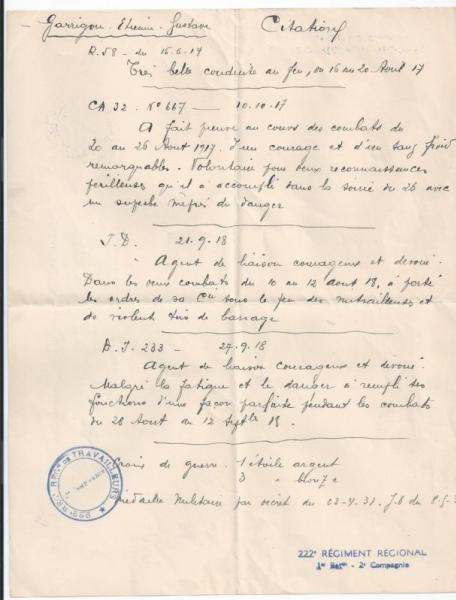 Garrigou - Etienne - Gustave Citations
R. 58 - du 15.6.17
Très belle conduite au feu, du 16 au 20 Août 17
CA 32. No 667 — 10.10.17
A fait preuve au cours des combats du
20 au 26 Août 1917, d'un courage et d'un sang froid
remarquables. Volontaire pour deux reconnaissances
périlleuses qu'il a accompli dans la soirée du 26 avec
un superbe mépris du danger
21.9.18
Agent de liaison courageux et dévoué.
Dans les deux combats du 10 au 12 août 18, a porté
les ordres de sa Cie sous le feu des mitrailleuses et
de violent tirs de barrage
233 - 27.9.18
Agent de liaison courageux et dévoué.
Malgré la fatigue et le danger a rempli ses
fonctions d'une façon parfaite pendant les combats
du 28 Août au 12 Septbre 18.
Croix de guerre. 1 étoile argent
3 " bronze
Médaille Militaire par décret du
TRAVAILLEURS
222e RÉGIMENT RÉGIONAL
1er Batn - 2e Compagnie